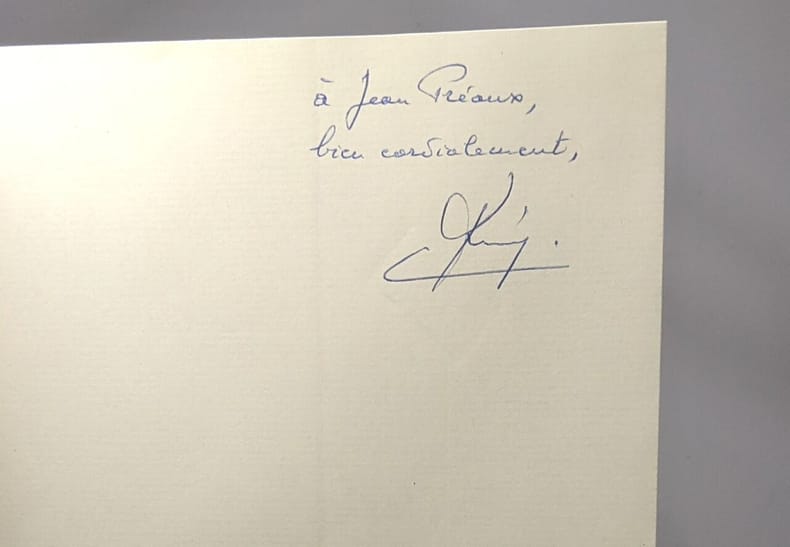 à Jean Préaux,
bien cordialement,